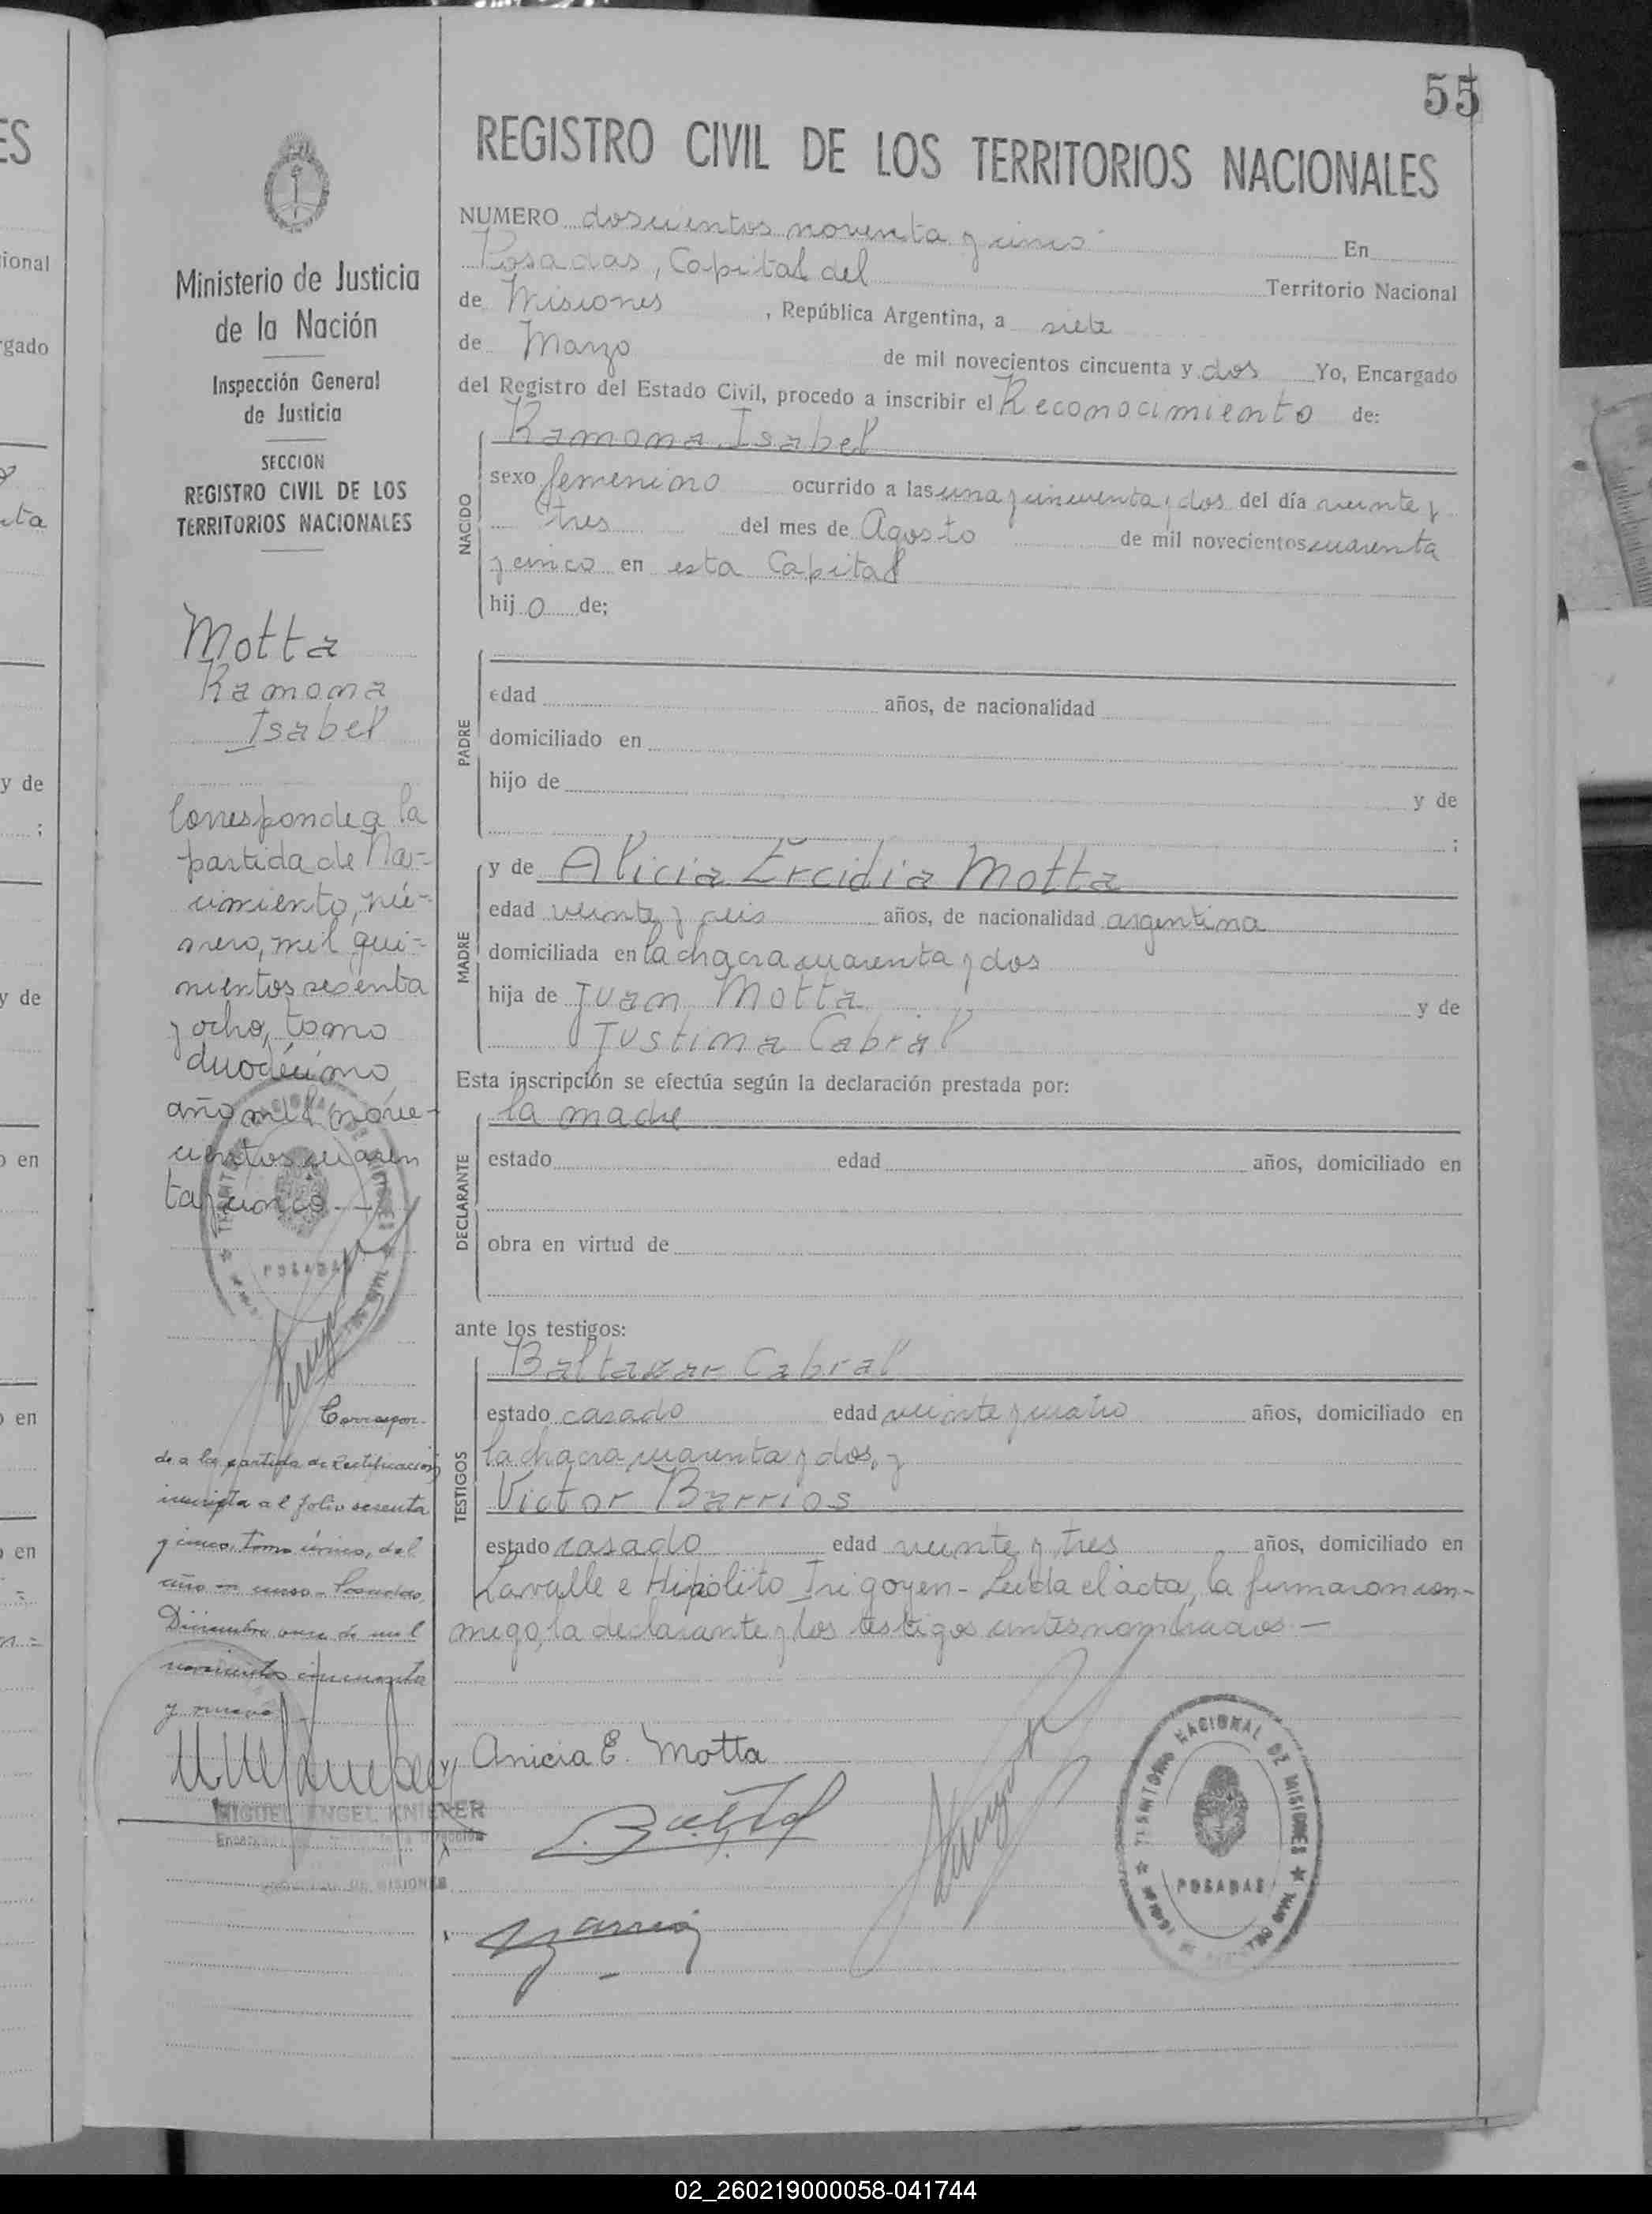 55
REGISTRO CIVIL DE LOS TERRITORIOS NACIONALES
Ministerio de Justicia
de la Nación
Inspección General
de Justicia
SECCION
REGISTRO CIVIL DE LOS
TERRITORIOS NACIONALES
Motta
Ramona
Isabel
Corresponde a la
partida de Na-
cimiento, nú-
mero, mil qui-
nientos sesenta
y ocho, tomo
duodécimo
año mil nove-
cientos cuaren
ta y cinco
POSADAS
Correspon-
de a la partida de Rectificación
inscripta al folio sesenta
y cinco, tomo único, del
año en curso - Posadas,
Diciembre once de mil
novecientos cincuenta
y nueve
MIGUEL ANGEL KNIERER
DE MISIONES
NUMERO doscientos noventa y cinco En
Posadas, Capital del Territorio Nacional
de Misiones, República Argentina, a siete
de Marzo de mil novecientos cincuenta y dos Yo, Encargado
del Registro del Estado Civil, procedo a inscribir el Reconocimiento de:
Ramona Isabel
NACIDO
sexo femenino ocurrido a las una y cincuenta y dos del día veinte y
tres del mes de Agosto de mil novecientos cuarenta
y cinco en esta Capital
hij o de;
PADRE
edad años, de nacionalidad
domiciliado en
hijo de y de
;
MADRE
y de Alicia Ercidia Motta
edad veinte y seis años, de nacionalidad argentina
domiciliada en la chacra cuarenta y dos
hija de Juan Motta y de
Justina Cabral
Esta inscripción se efectúa según la declaración prestada por:
la madre
DECLARANTE
estado edad años, domiciliado en
obra en virtud de
ante los testigos:
TESTIGOS
Baltazar Cabral
estado casado edad veinte y cuatro años, domiciliado en
la chacra cuarenta y dos, y
Victor Barrios
estado casado edad veinte y tres años, domiciliado en
Lavalle e Hipólito Irigoyen - Leída el acta, la firmaron con-
migo, la declarante y los testigos antes nombrados -
Anicia E. Motta
TERRITORIO NACIONAL DE MISIONES
POSADAS
02_260219000058-041744